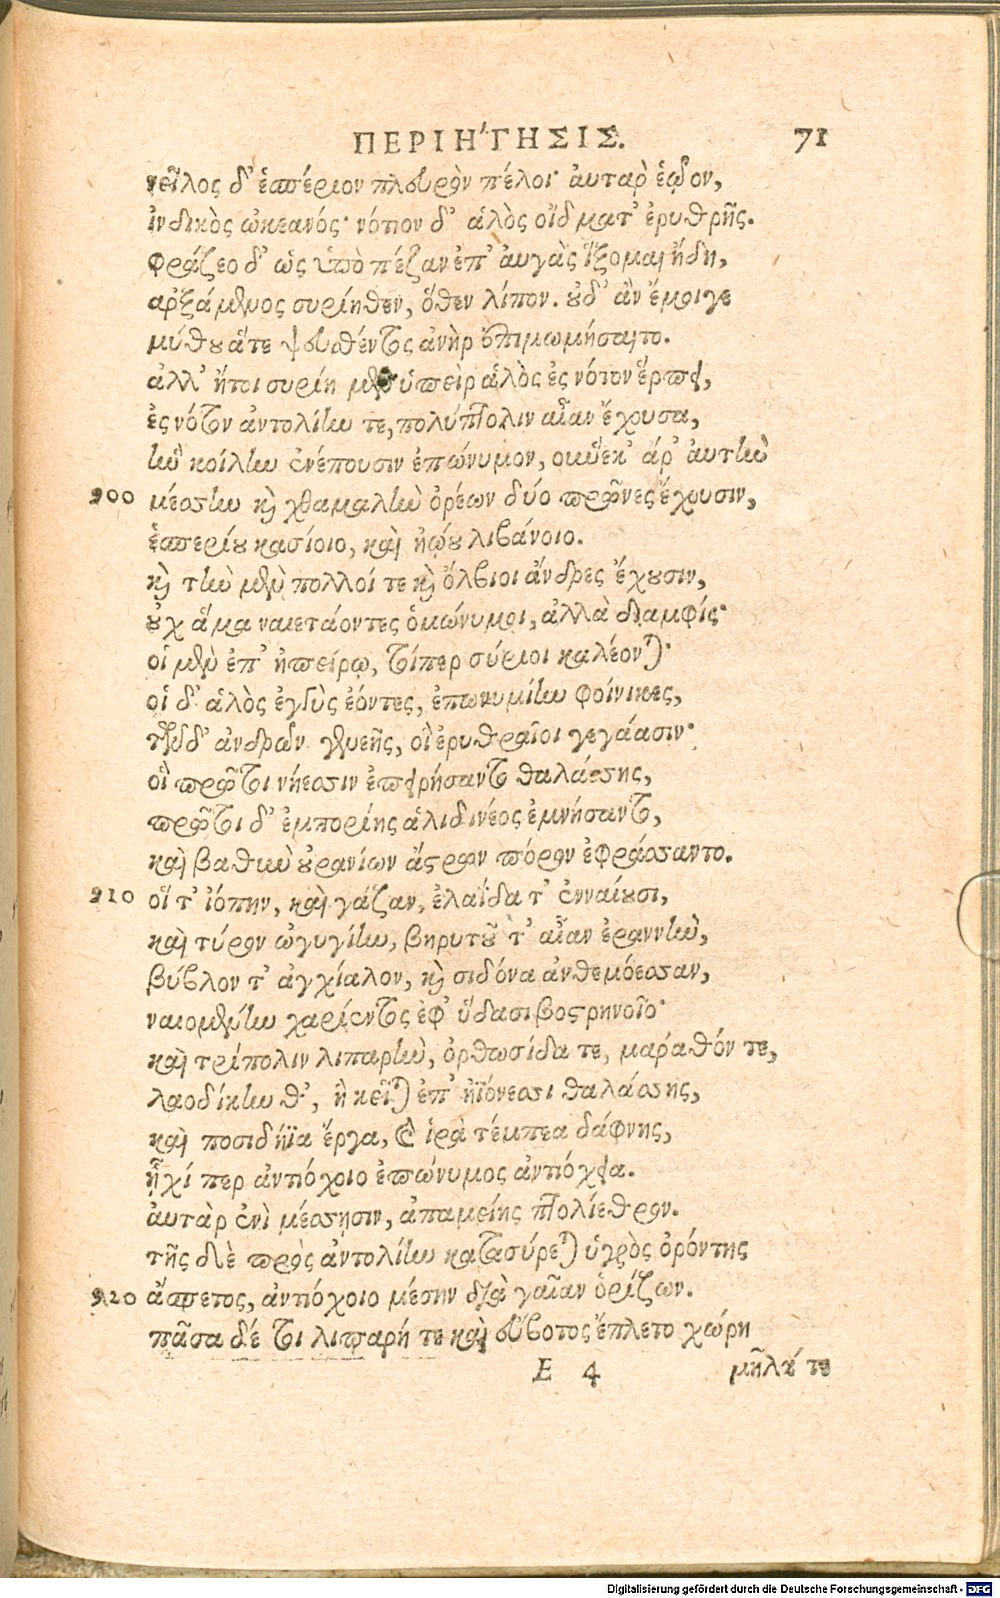 ΠΕΡΙΗΓΗΣΙΣ. 71
νεῖλος δ' ἑσπέριον πλευρὸν πέλοι· ἀυταρ ἑῷον,
ἰνδικὸς ὠκεανός· νότιον δ' ἁλὸς οἴδματ' ἐρυθρῆς.
φράζεο δ' ὡς ὑπὸ πέζαν ἐπ' ἀυγὰς ἵξομαι ἤδη,
ἀρξάμενος συρίηθεν, ὅθεν λίπον. οὐδ' ἂν ἔμοιγε
μύθου ἅτε ψευθέντος ἀνὴρ ἐπιμωμήσαιτο.
ἀλλ' ἤτοι συρίη μὲν ὑπεὶρ ἁλὸς ἐς νότον ἕρπει,
ἐς νότον ἀντολίην τε, πολύπτολιν αἶαν ἔχουσα,
ἣν κοίλην ἐνέπουσιν ἐπώνυμον, οὕνεκ' ἄρ' ἀυτὴν
900 μέσσην καὶ χθαμαλὴν ὀρέων δύο πρῶνες ἔχουσιν,
ἑσπερίου κασίοιο, καὶ ἠῴου λιβάνοιο.
καὶ τὴν μὲν πολλοί τε καὶ ὄλβιοι ἄνδρες ἔχουσιν,
οὐχ ἅμα ναιετάοντες ὁμώνυμοι, ἀλλὰ διαμφίς·
οἱ μὲν ἐπ' ἠπείρῳ, τοίπερ σύριοι καλέονται·
οἱ δ' ἁλὸς ἐγγὺς ἐόντες, ἐπωνυμίην φοίνικες,
τῶν δ' ἀνδρῶν γενεῆς, οἳ ἐρυθραῖοι γεγάασιν·
οἳ πρῶτοι νήεσσιν ἐπειρήσαντο θαλάσσης,
πρῶτοι δ' ἐμπορίης ἁλιδινέος ἐμνήσαντο,
καὶ βαθὺν οὐρανίων ἄστρων πόρον ἐφράσσαντο.
910 οἵ τ' ἰόπην, καὶ γάζαν, ἐλαΐδα τ' ἐνναίουσι,
καὶ τύρον ὠγυγίην, βηρυτοῦ τ' αἶαν ἐραννὴν,
βύβλον τ' ἀγχίαλον, καὶ σιδόνα ἀνθεμόεσσαν,
ναιομένην χαρίεντος ἐφ' ὕδασι βοστρηνοῖο·
καὶ τρίπολιν λιπαρὴν, ὀρθωσίδα τε, μάραθόν τε,
λαοδίκην θ', ἣ κεῖται ἐπ' ἠϊόνεσσι θαλάσσης,
καὶ ποσιδήϊα ἔργα, καὶ ἱρὰ τέμπεα δάφνης,
ᾗχί περ ἀντιόχοιο ἐπώνυμος ἀντιόχεια.
ἀυτὰρ ἐνὶ μέσσησιν, ἀπαμείης πτολίεθρον.
τῆς δὲ πρὸς ἀντολίην κατασύρεται ὑγρὸς ὀρόντης
920 ἄσπετος, ἀντιόχοιο μέσην διὰ γαῖαν ὁρίζων.
πᾶσα δέ τοι λιπαρή τε καὶ εὔβοτος ἔπλετο χώρη
E 4 μῆλά τε
Digitalisierung gefördert durch die Deutsche Forschungsgemeinschaft - DFG